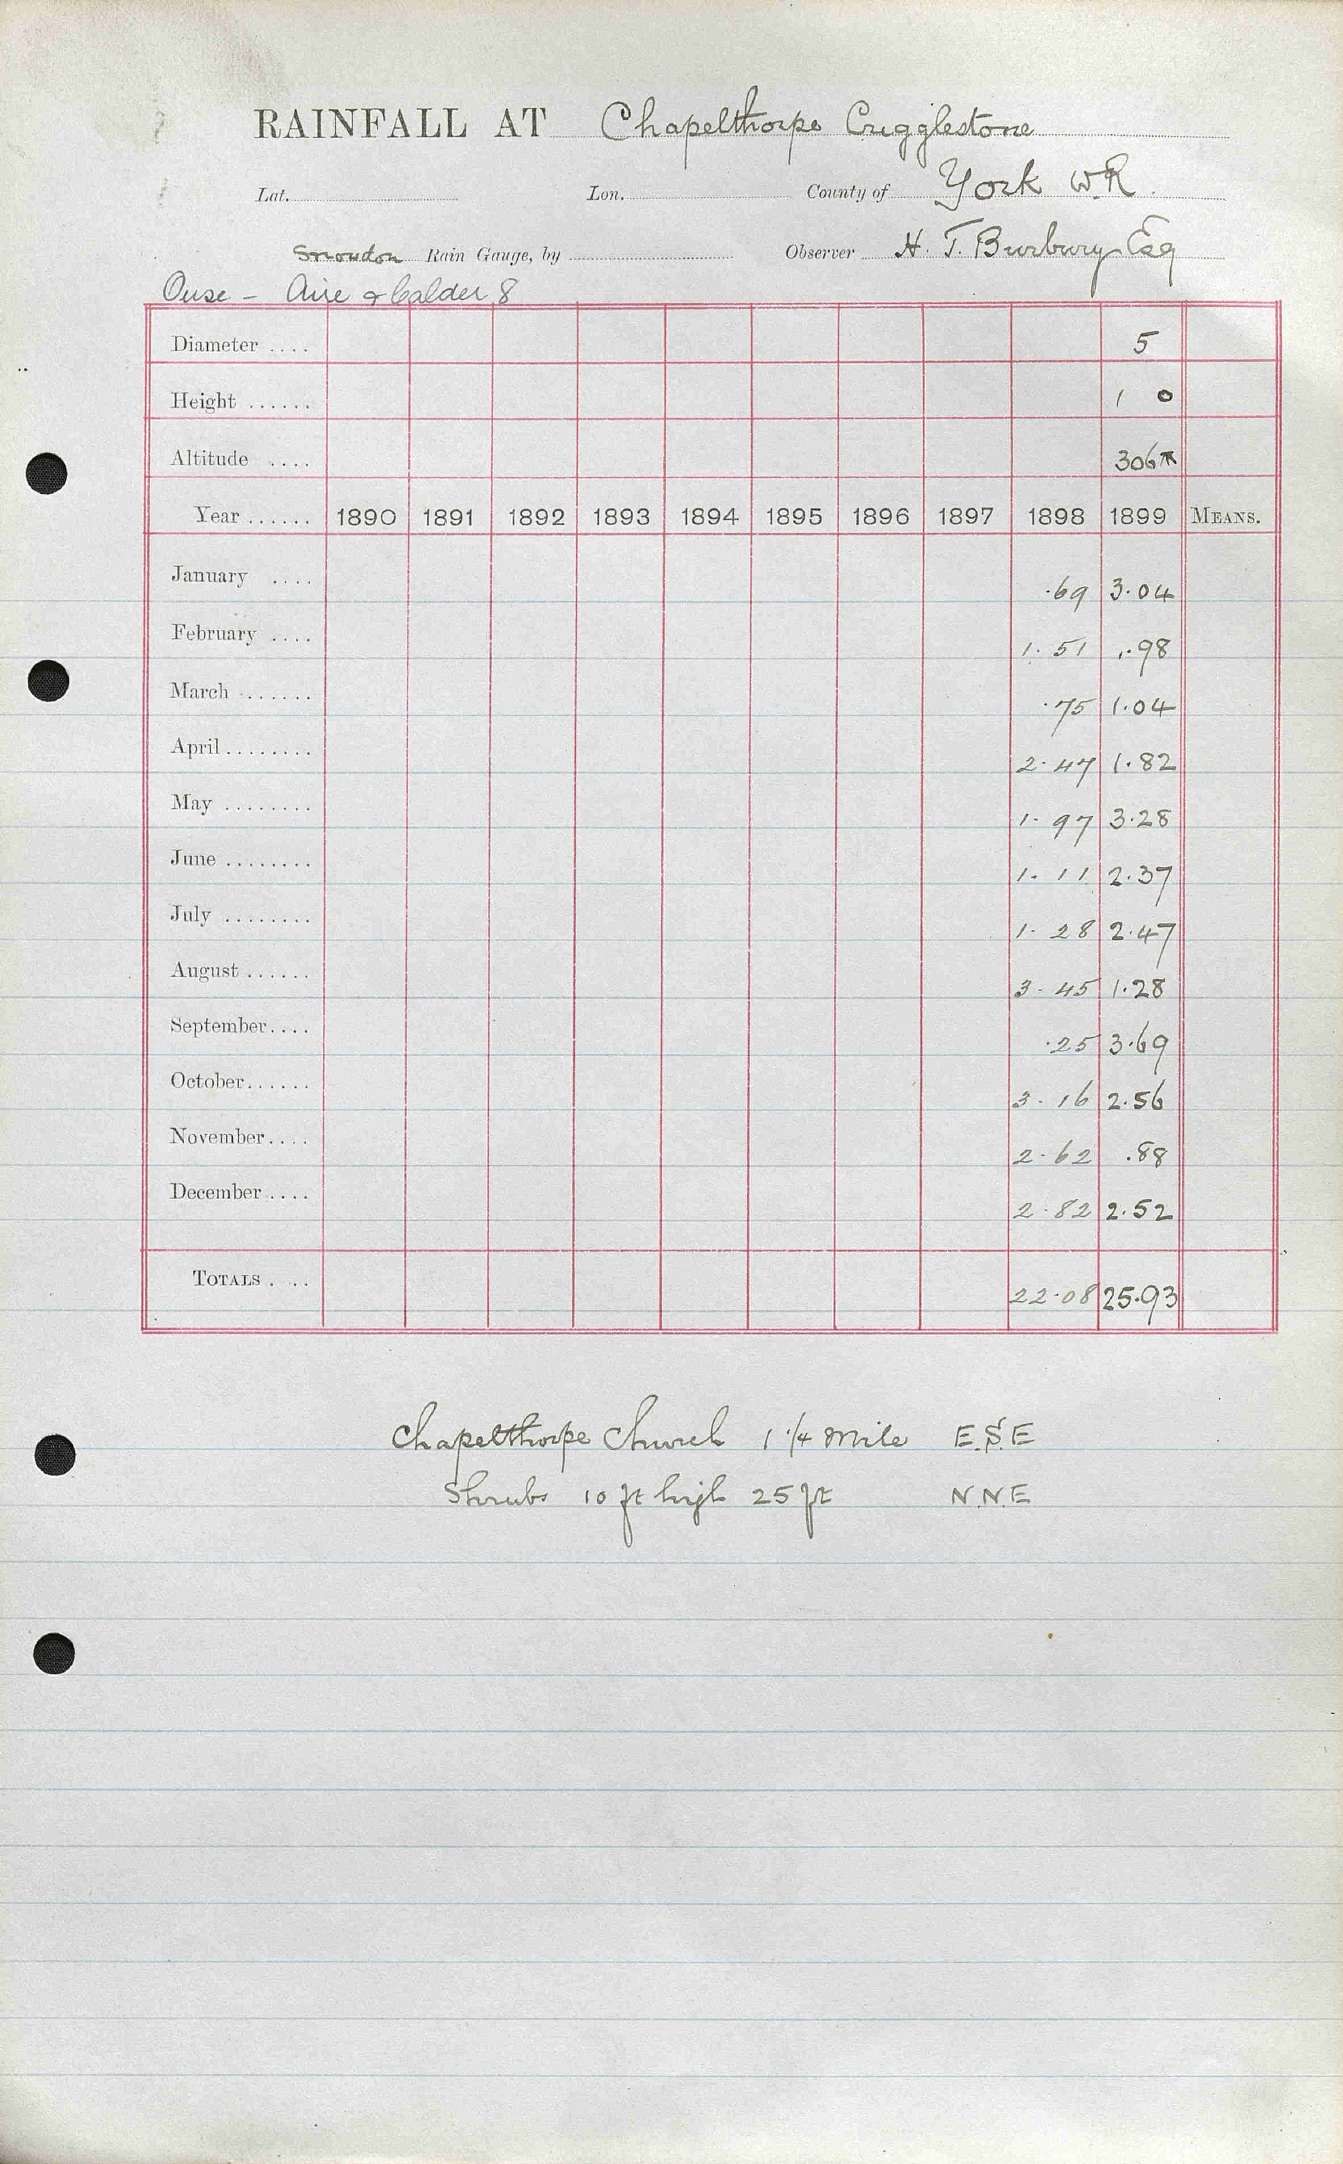 RAINFALL AT Chapelthorpe Crigglestone
Lat. Lon. County of York W.R.
Snowdon Rain Gauge, by Observer H. T. Burbury Esq
Ouse - Aire & Calder 8
Diameter .... 5
Height ...... 1 0
Altitude .... 306
Year ...... 1890 1891 1892 1893 1894 1895 1896 1897 1898 1899 MEANS.
January .... .69 3.04
February .... 1.51 .98
March ....... .75 1.04
April ........ 2.47 1.82
May ........ 1.97 3.28
June ........ 1.11 2.37
July ........ 1.28 2.47
August ...... 3.45 1.28
September .... .25 3.69
October ...... 3.16 2.56
November .... 2.62 .88
December .... 2.82 2.52
TOTALS . .. 22.08 25.93
Chapelthorpe Church 1 1/4 mile E.S.E
Shrubs 10 ft high 25 ft N.N.E